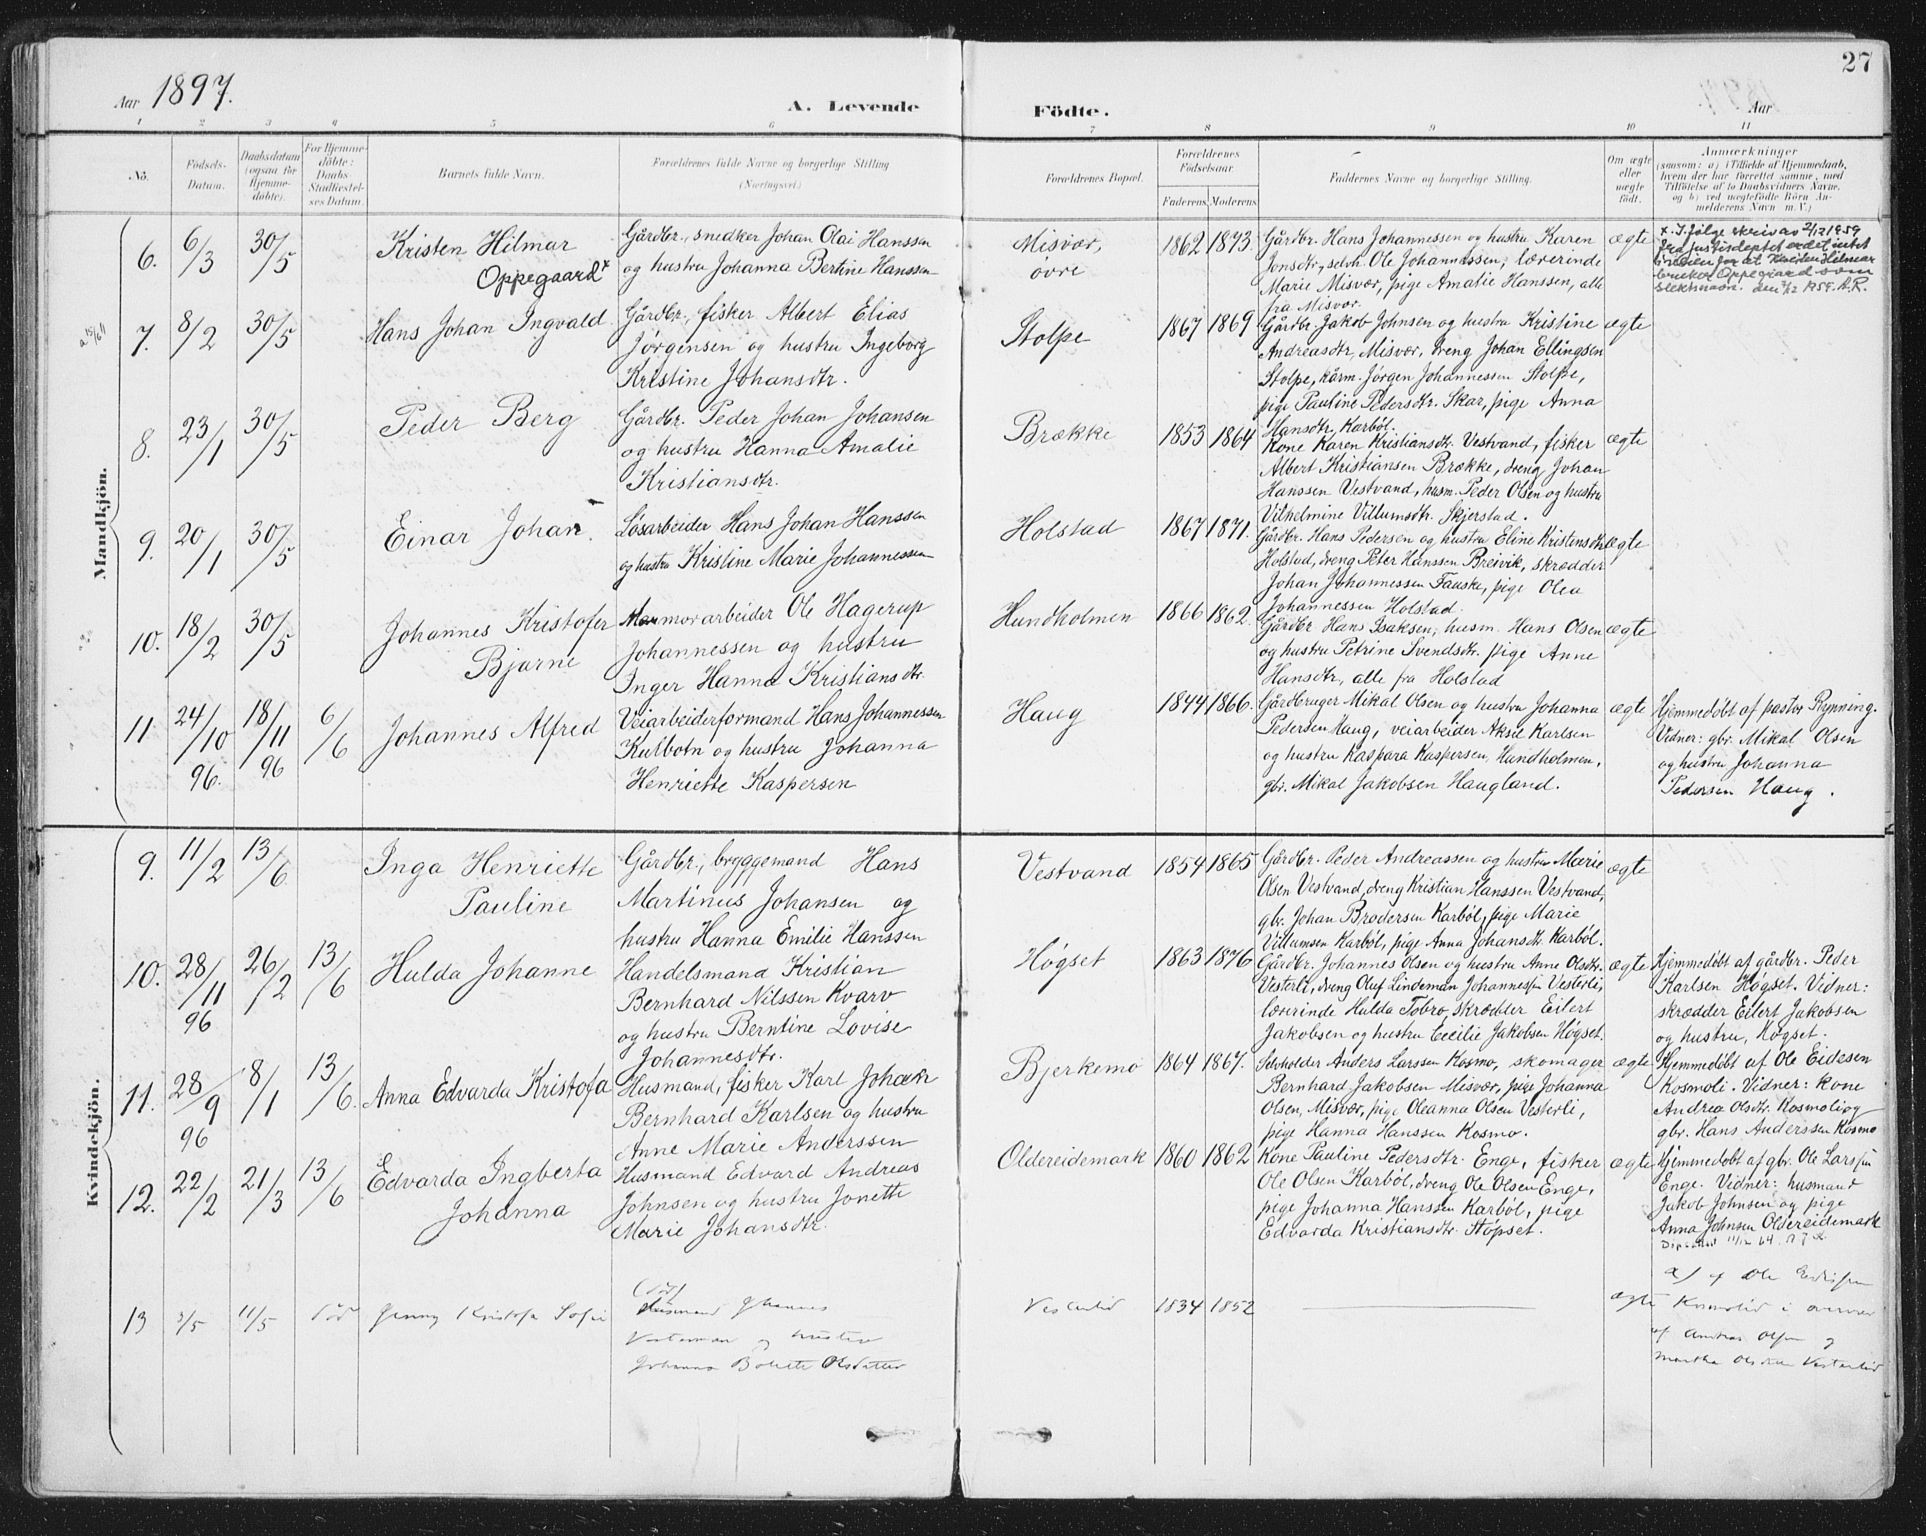 27
Aar 1897.
A. Levende
Födte.
Aar
1 2 3 4 5 6 7 8 9 10 11
Nö.
Födsels-Datum.
Daabsdatum (ogsaa for Hjemme-döbte).
For Hjemme-döbte: Daabs-Stadfæstel-ses Datum.
Barnets fulde Navn.
Forældrenes fulde Navne og borgerlige Stilling (Næringsvei).
Forældrenes Bopæl.
Forældrenes Födselsaar.
Faderens Moderens
Faddernes Navne og borgerlige Stilling.
Om ægte eller uægte födt.
Anmærkninger
(saasom: a) i Tilfælde af Hjemmedaab,
hvem der har forrettet samme, med
Tilföielse af to Daabsvidners Navne,
og b) ved uægtefödte Börn An-
melderens Navn m. V.)
Mandkjön.
6. 6/3 30/5 Kristen Hilmar
Oppegaard x
Gårdbr., snedker Johan Olai Hanssen
og hustru Johanna Bertine Hanssen
Misvær,
øvre
1862 1873
Gårdbr. Hans Johannessen og hustru Karen
Jonsdtr, selvh. Ole Johannessen, lærerinde
Marie Misvær, pige Amalie Hanssen, alle
fra Misvær.
ægte
x. I følge skriv av 2/12 1959
fra Justisdeptet er det intet
i veien for at Kristen Hilmar
bruker Oppegaard som
slektsnavn.
7. 8/2 30/5 Hans Johan Ingvald
Gårdbr., fisker Albert Elias
Jørgensen og hustru Ingeborg
Kristine Johansdtr.
Stolpe
1867 1869
Gårdbr. Jakob Johnsen og hustru Kristine
Andreasdtr, Misvær, dreng Johan Ellingsen
Stolpe, kårm. Jørgen Johannessen Stolpe,
pige Pauline Pedersdtr. Skar, pige Anna
Hansdtr, Karbøl.
ægte
8. 23/1 30/5 Peder Berg
Gårdbr. Peder Johan Johansen
og hustru Hanna Amalie
Kristiansdtr.
Brække
1853 1864
Kone Karen Kristiansdtr. Vestvand, fisker
Albert Kristiansen Brække, dreng Johan
Hanssen Vestvand, husm. Peder Olsen og hustru
Vilhelmine Villumsdtr. Skjerstad.
ægte
9. 20/1 30/5 Einar Johan.
Løsarbeider Hans Johan Hanssen
og hustru Kristine Marie Johannessen
Holstad
1867 1871.
Gårdbr. Hans Pedersen og hustru Eline Kristensdtr
Holstad, dreng Peter Hanssen Breivik, skrædder
Johan Johannessen Fauske, pige Olea
Johannessen Holstad.
ægte
10. 18/2 30/5 Johannes Kristofer
Bjarne
Marmorarbeider Ole Hagerup
Johannessen og hustru
Inger Hanna Kristiansdtr.
Hundholmen
1866 1862.
Gårdbr Hans Isaksen, husm. Hans Olsen
og hustru Petrine Svendsdtr. pige Anne
Hansdtr, alle fra Holstad
ægte
11 24/10 96. 18/11 96 6/6 Johannes Alfred
Veiarbeiderformand Hans Johannessen
Kulbotn og hustru Johanna
Henriette Kaspersen
Haug
1844 1866.
Gårdbruger Mikal Olsen og hustru Johanna
Pedersen Haug, veiarbeider Aksel Karlsen
og hustru Kaspara Kaspersen, Hundholmen,
gbr. Mikal Jakobsen Haugland.
ægte
Hjemmedøbt af pastor Rynning.
Vidner: gbr. Mikal Olsen
og hustru Johanna
Pedersen Haug.
Kvindekjön.
9. 11/2 13/6 Inga Henriette
Pauline
Gårdbr., bryggemand Hans
Martinus Johansen og
hustru Hanna Emilie Hanssen
Vestvand
1854 1865
Gårdbr. Peder Andreassen og hustru Marie
Olsen Vestvand, dreng Kristian Hanssen Vestvand,
gbr. Johan Brodersen Karbøl, pige Marie
Villumsen Karbøl, pige Anna Johansdtr Karbøl.
ægte
10. 28/11 96 26/2 13/6 Hulda Johanne
Handelsmand Kristian
Bernhard Nilssen Kvarv
og hustru Berntine Lovise
Johannesdtr.
Høgset
1863 1876
Gårdbr. Johannes Olsen og hustru Anne Olsdtr.
Vesterli, dreng Oluf Lindeman Johannessen Vesterli,
lærerinde Hulda Tobro, skrædder Eilert
Jakobsen og hustru Cecilie Jakobsen Høgset.
ægte
Hjemmedøbt af gårdbr. Peder
Karlsen Høgset. Vidner:
skrædder Eilert Jakobsen
og hustru, Høgset.
11. 28/9 96 8/1 13/6. Anna Edvarda Kristofa
Husmand, fisker Karl Johan
Bernhard Karlsen og hustru
Anne Marie Anderssen
Bjerkemo
1864 1867.
Selvholder Anders Larssen Kosmo, skomager
Bernhard Jakobsen Misvær, pige Johanna
Olsen, Misvær, pige Oleanna Olsen Vesterli,
pige Hanna Hanssen Kosmo.
ægte
Hjemmedøbt af Ole Eidesen
Kosmoli. Vidner: kone
Andrea Olsdtr. Kosmoli og
gbr. Hans Anderssen Kosmo
12. 22/2 21/3 13/6 Edvarda Ingberta
Johanna
Husmand Edvard Andreas
Johnsen og hustru Jonette
Marie Johansdtr.
Oldereidemark
1860 1862
Kone Pauline Pedersdtr. Enge, fisker
Ole Olsen Karbøl, dreng Ole Olsen Enge,
pige Johanna Hanssen Karbøl, pige
Edvarda Kristiansdtr. Støpset.
ægte
Hjemmedøbt af gbr. Ole Larssen
Enge. Vidner: husmand
Jakob Johnsen og pige
Anna Johnsen Oldereidemark
13 11/5 Død Jenny Kristofa Sofie
Husmand Johannes
og hustru
Johanna Olsdatter
Vesterlid
1834 1852
ægte
af Ole
Kosmolid i overvær
af Andreas Olsen og
Martha Olsdatter Vesterlid